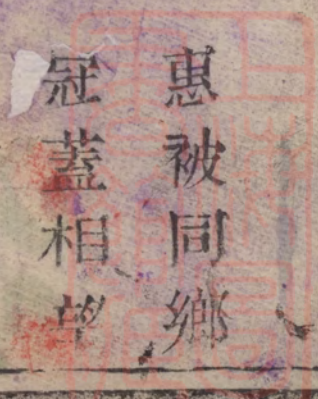 惠被同鄉
冠蓋相望